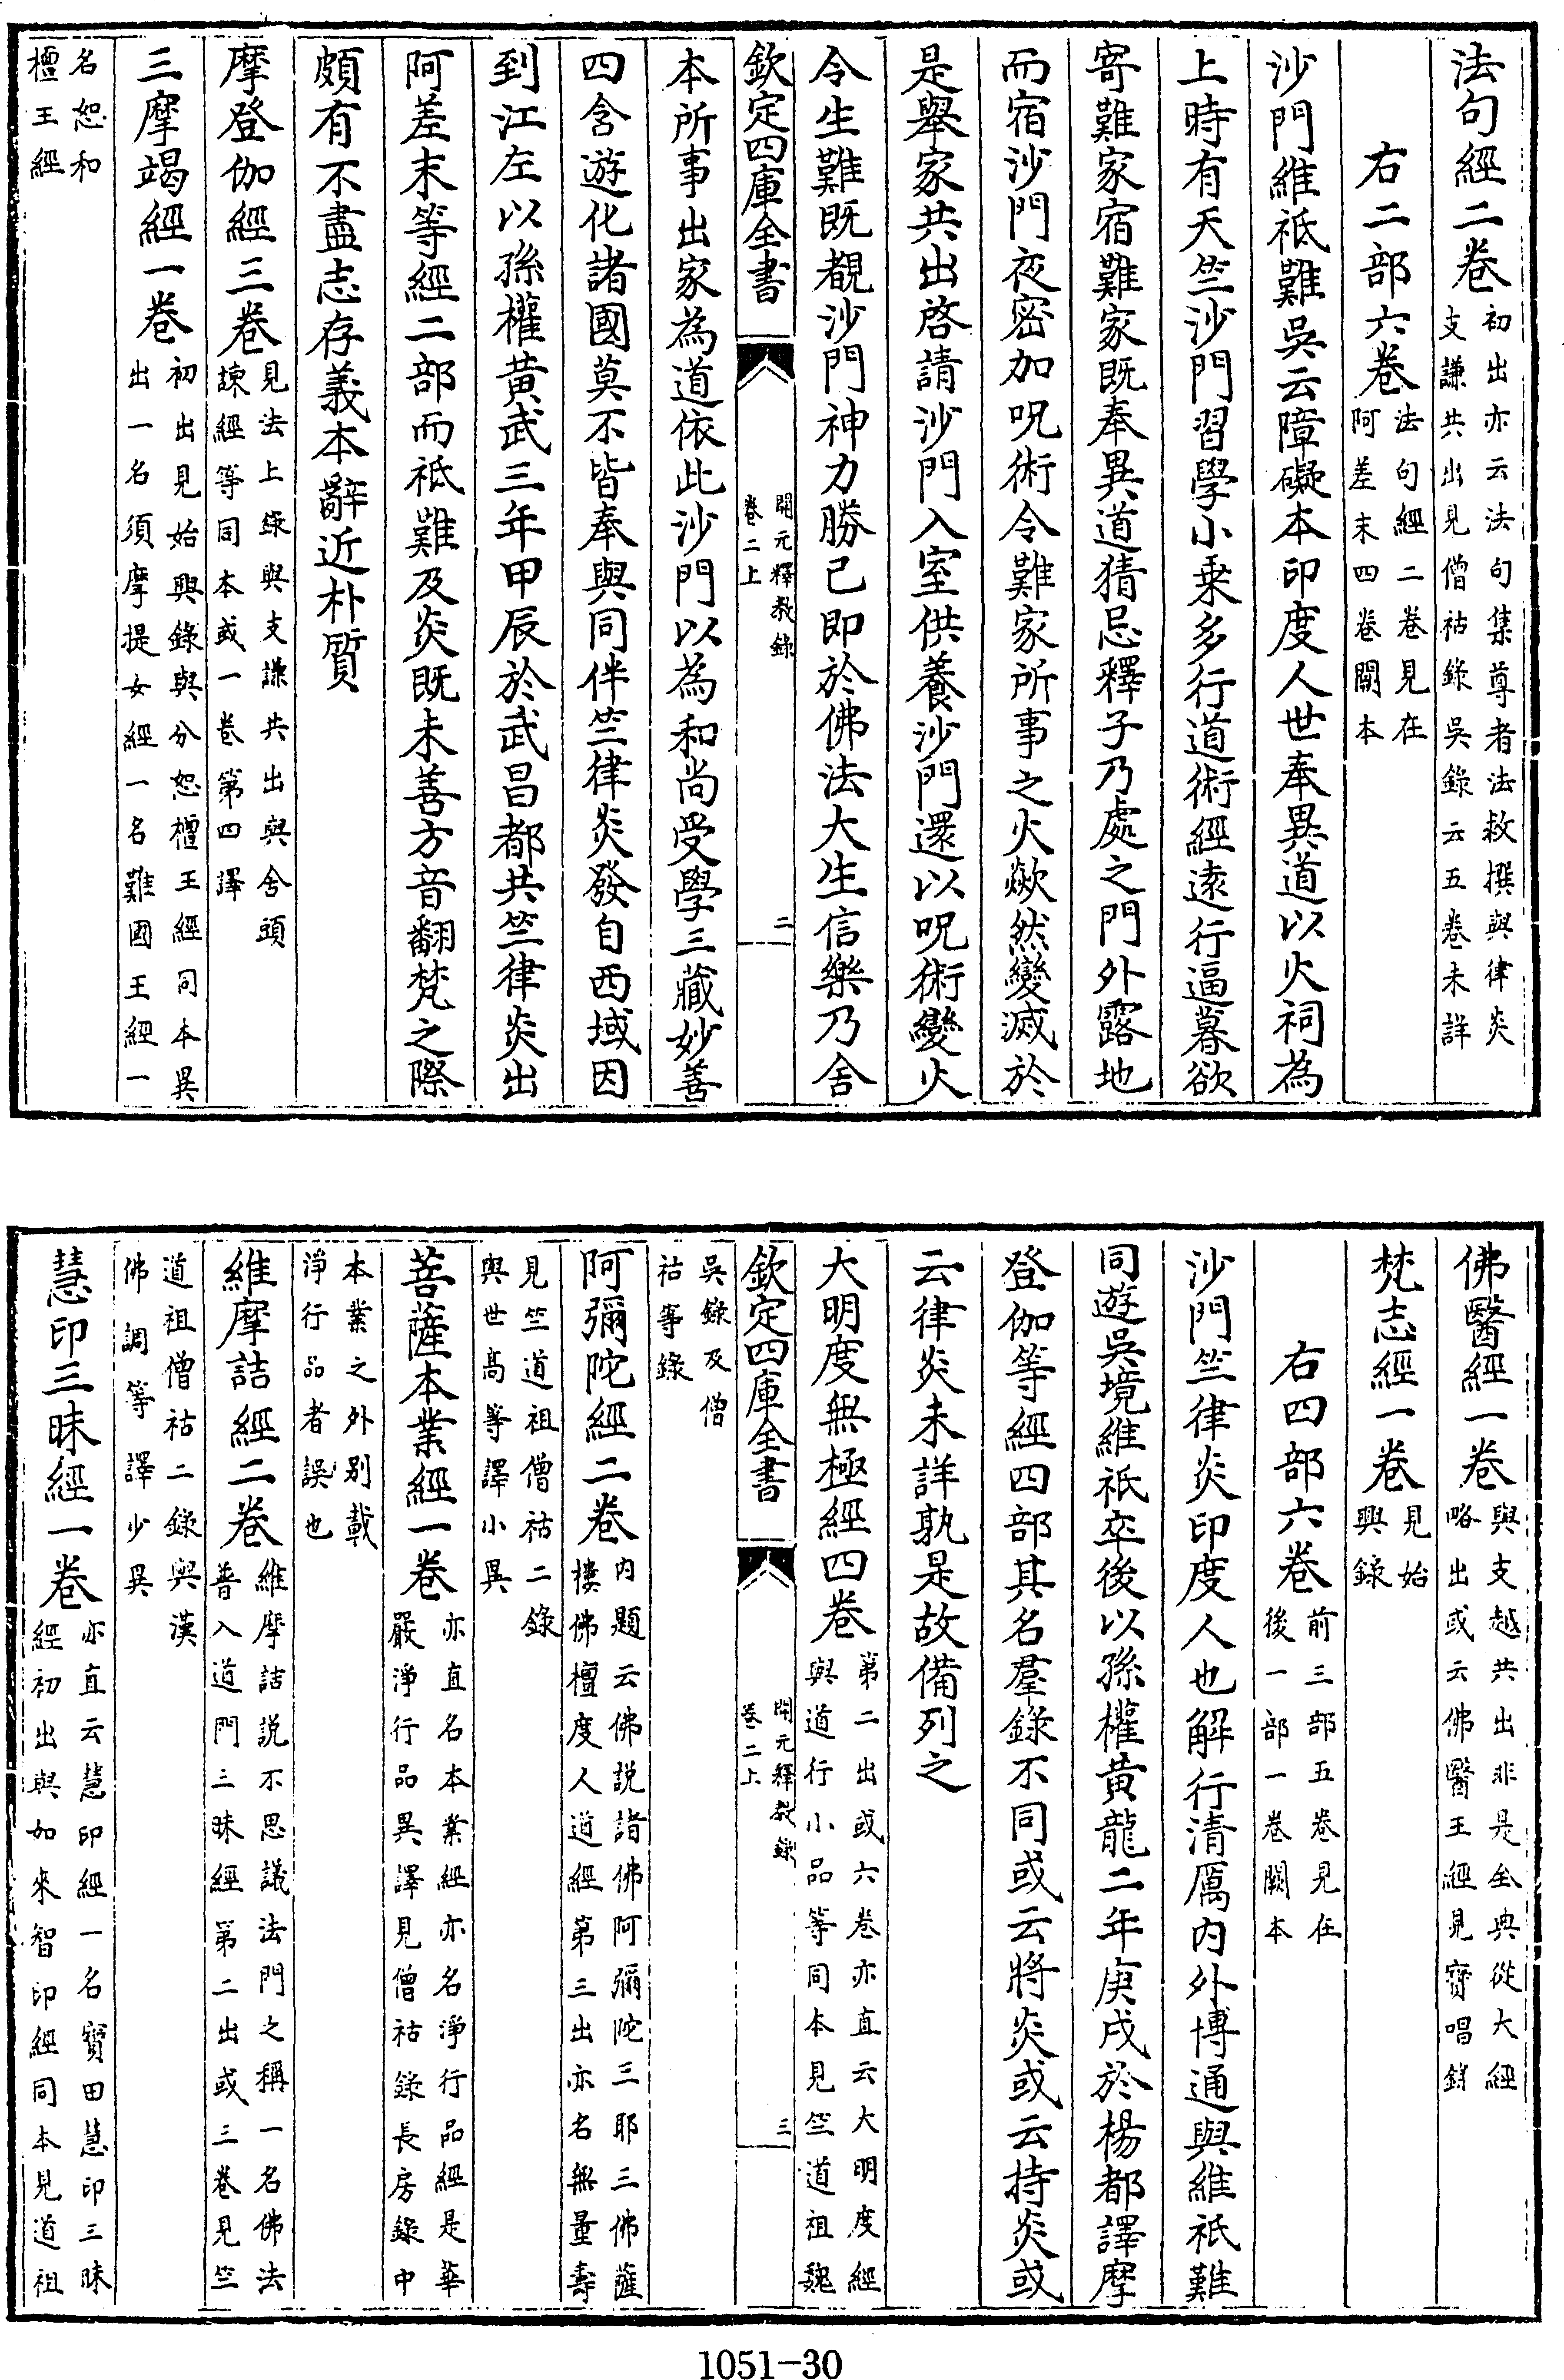 法句經二卷初出亦云法句集尊者法救撰與律炎
支謙共出見僧祐錄吳錄云五卷未詳
右二部六卷法句經二卷見在
阿差末四卷闕本
沙門維祗難吳云障礙本印度人世奉異道以火祠為
上時有天竺沙門習學小乗多行道術經逺行逼暮欲
寄難家宿難家既奉異道猜忌釋子乃處之門外露地
而宿沙門夜密加呪術令難家所事之火歘然變滅於
是舉家共出啓請沙門入室供養沙門還以呪術變火
令生難既覩沙門神力勝已即於佛法大生信樂乃舍
欽定四庫全書
開元釋教錄
卷二上
二
本所事出家為道依此沙門以為和尚受學三藏妙善
四含遊化諸國莫不皆奉與同伴竺律炎發自西域因
到江左以孫權黄武三年甲辰於武昌都共竺律炎出
阿差末等經二部而祗難及炎既未善方音翻梵之際
頗有不盡志存義本辭近朴質
摩登伽經三卷見法上錄與支謙共出與舍頭
諫經等同本或一卷第四譯
三摩竭經一卷初出見始興錄與分恕檀王經同本異
出一名須摩提女經一名難國王經一
名恕和
檀王經
佛醫經一卷與支越共出非是全典從大經
略出或云佛醫王經見寳唱錄
梵志經一卷見始
興錄
右四部六卷前三部五卷見在
後一部一卷闕本
沙門竺律炎印度人也解行清厲内外博通與維祇難
同遊吳境維祇卒後以孫權黄龍二年庚戌於楊都譯摩
登伽等經四部其名羣錄不同或云將炎或云持炎或
云律炎未詳孰是故備列之
大明度無極經四卷第二出或六卷亦直云大明度經
與道行小品等同本見竺道祖魏
欽定四庫全書
開元釋教錄
卷二上
三
吳錄及僧
祐等錄
阿彌陀經二卷内題云佛説諸佛阿彌陀三耶三佛薩
樓佛檀度人道經第三出亦名無量壽
見竺道祖僧祐二錄
與世髙等譯小異
菩薩本業經一卷亦直名本業經亦名淨行品經是華
嚴淨行品異譯見僧祐錄長房錄中
本業之外別載
淨行品者誤也
維摩詰經二卷維摩詰説不思議法門之稱一名佛法
普入道門三昧經第二出或三卷見竺
道祖僧祐二錄與漢
佛調等譯少異
慧印三昧經一卷亦直云慧印經一名寳田慧印三昧
經初出與如來智印經同本見道祖
1051-30